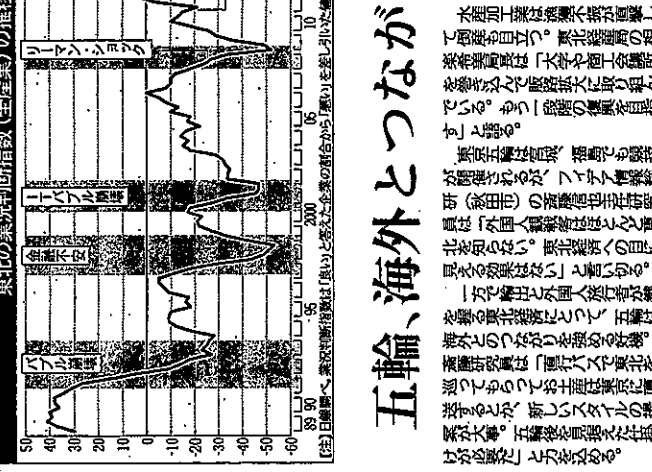 東北の業況判断指数（全産業）の推移
50
40
30
20
10
0
-10
-20
-30
-40
-50
-60
バブル崩壊
金融不安
ITバブル崩壊
リーマン・ショック
89 90 95 2000 05 10
【注】日銀調べ。業況判断指数は「良い」と答えた企業の割合から「悪い」を差し引いた値
五輪、海外とつなが
水産加工業は漁獲不振が直撃し
て倒産も目立つ。東北経産局の相
楽希美局長は「大学や商工会議所
を巻き込んで販路拡大に取り組ん
でいる。もう一段階の復興を目指
す」と語る。
東京五輪は宮城、福島でも競技
が開催されるが、フィデア情報総
研（秋田市）の斎藤信也主任研究
員は「外国人観戦客はほとんど東
北を知らない。東北経済への目に
見える効果はない」と言い切る。
一方で輸出と外国人旅行者が鍵
を握る東北経済にとって、五輪は
海外とのつながりを強める好機。
斎藤研究員は「直行バスで東北を
巡ってもらってお土産は東京に直
送するとか、新しいスタイルの提
案が大事。五輪後を見据えた仕掛
けが必要だ」と力を込める。